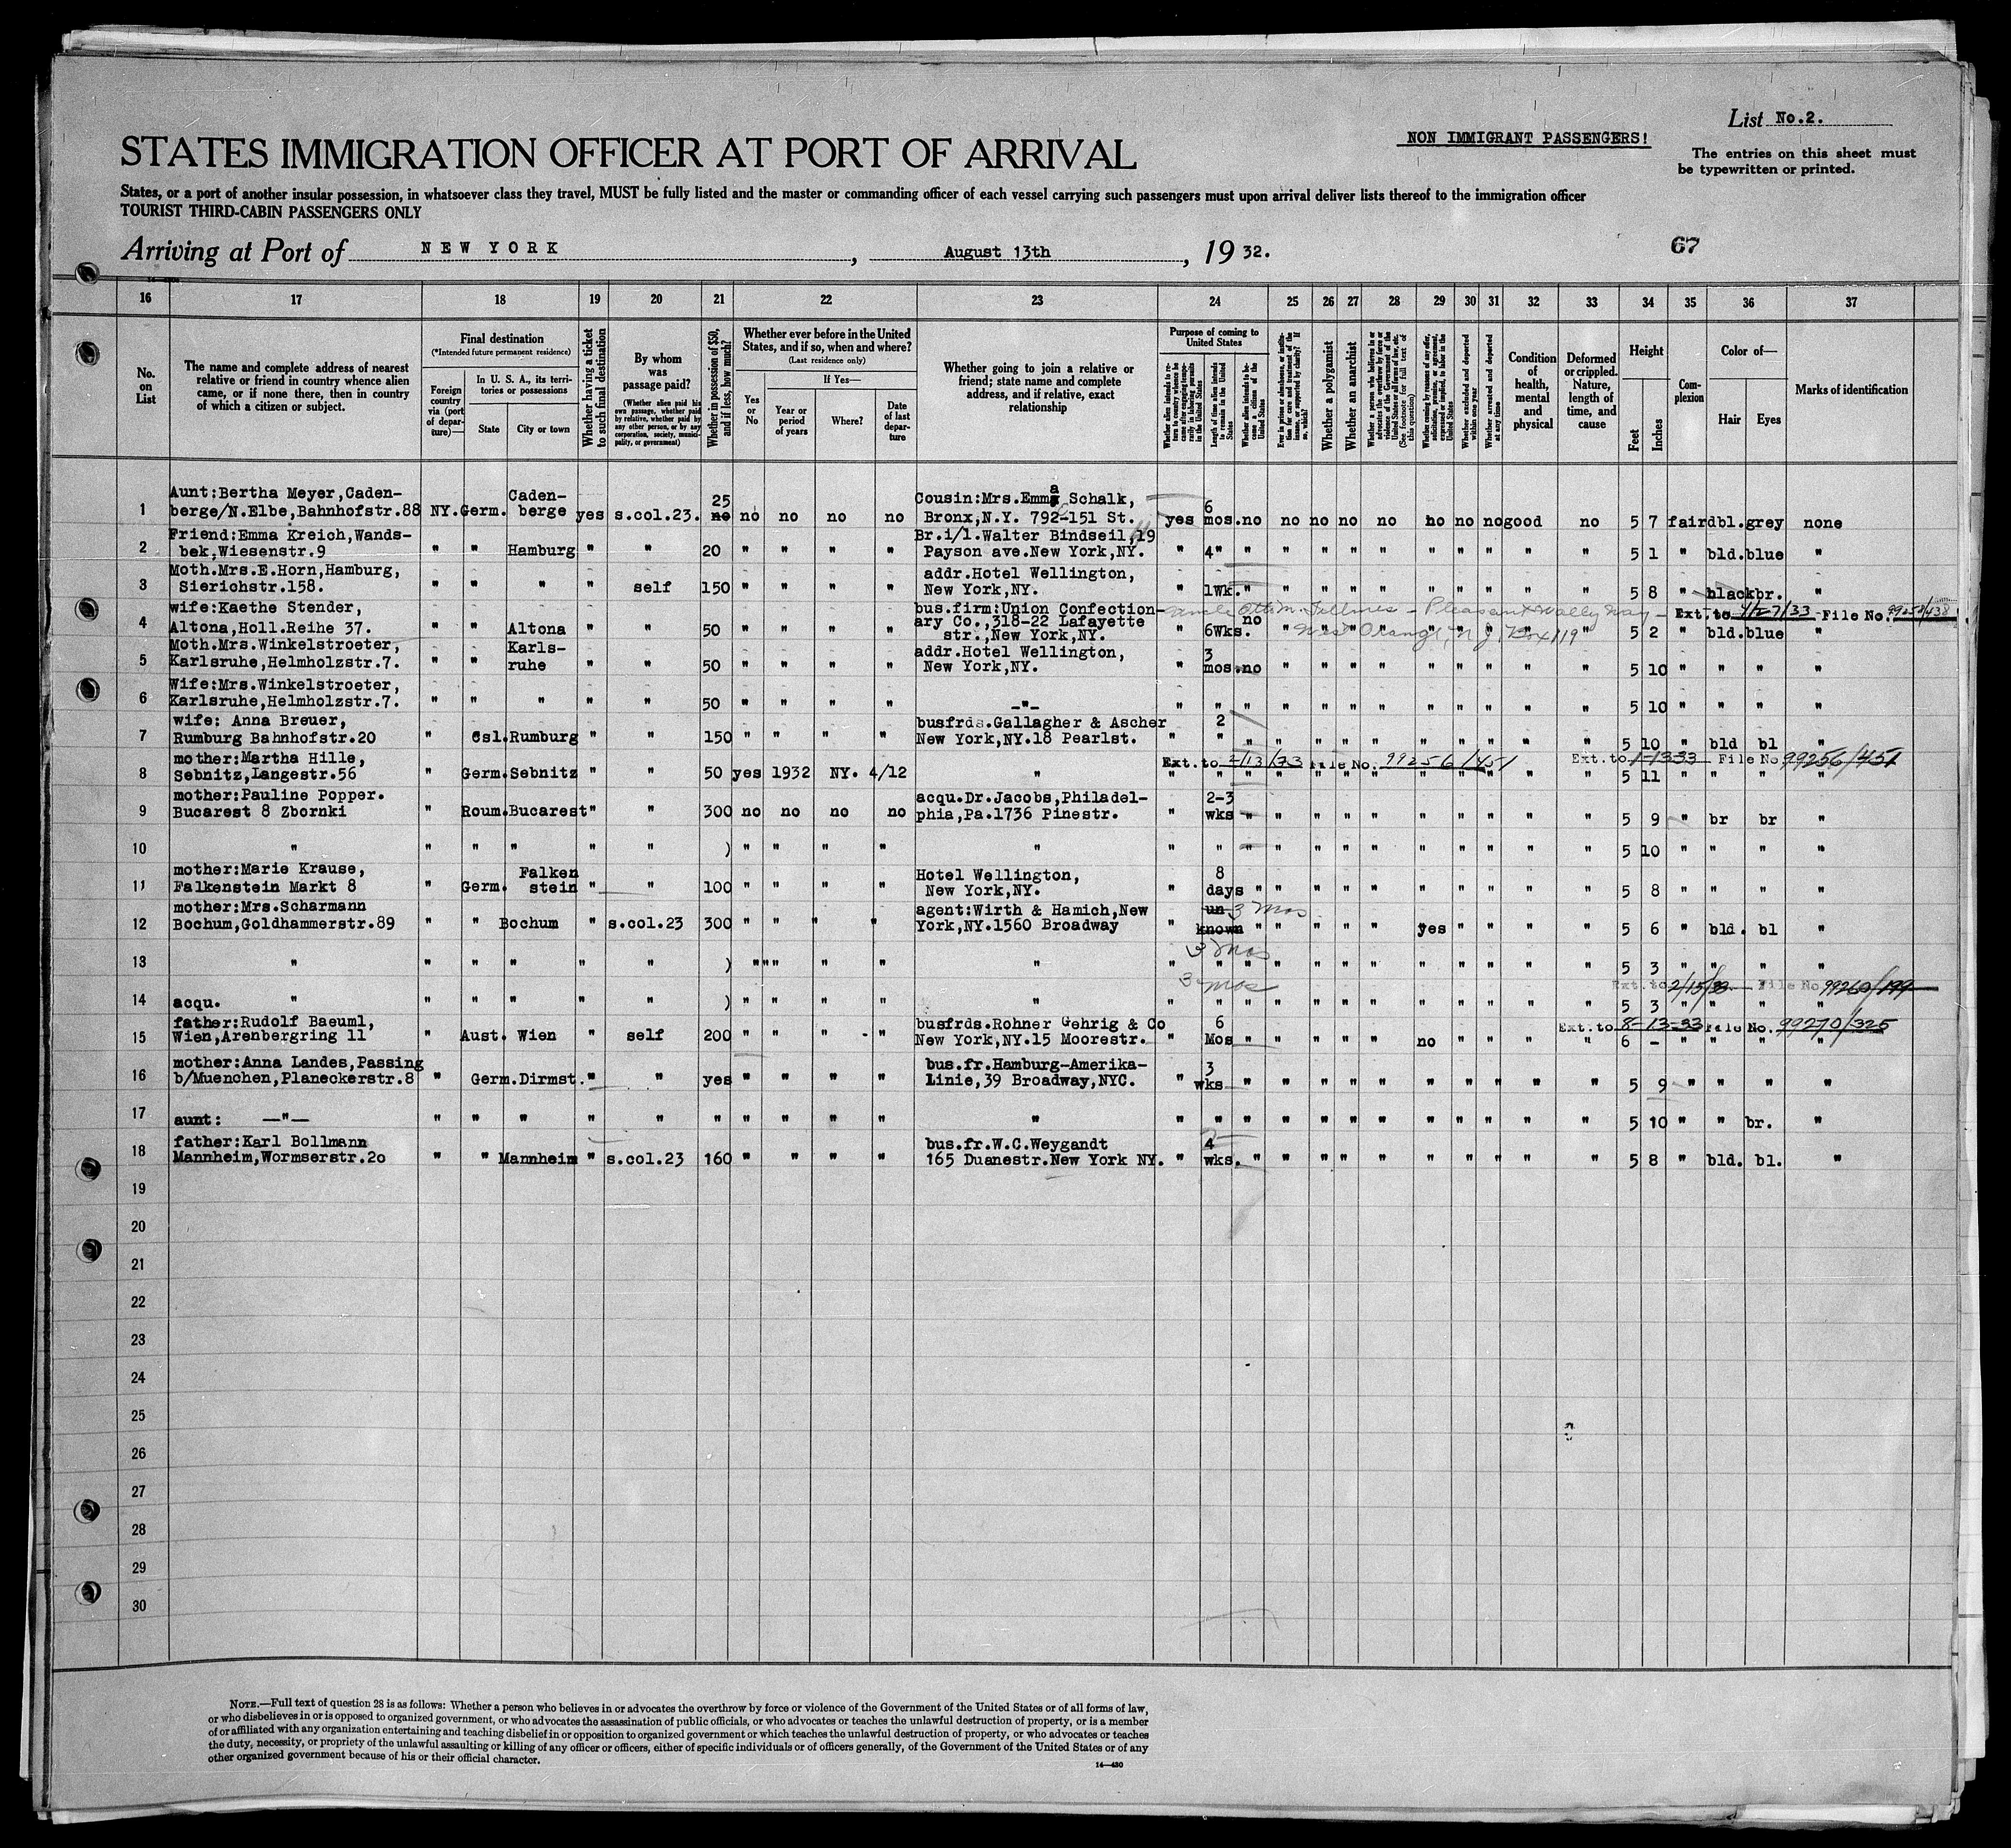 List No.2.
NON IMMIGRANT PASSENGERS!
STATES IMMIGRATION OFFICER AT PORT OF ARRIVAL
The entries on this sheet must
be typewritten or printed.
States, or a port of another insular possession, in whatsoever class they travel, MUST be fully listed and the master or commanding officer of each vessel carrying such passengers must upon arrival deliver lists thereof to the immigration officer
TOURIST THIRD-CABIN PASSENGERS ONLY
Arriving at Port of NEW YORK, August 13th, 1932.
67
16 17 18 19 20 21 22 23 24 25 26 27 28 29 30 31 32 33 34 35 36 37
No. on List
The name and complete address of nearest relative or friend in country whence alien came, or if none there, then in country of which a citizen or subject.
Final destination
(*Intended future permanent residence)
Foreign country via (port of departure)—
In U. S. A., its territories or possessions
State
City or town
Whether having a ticket to such final destination
By whom was passage paid?
(Whether alien paid his own passage, whether paid by relative, whether paid by any other person, or by any corporation, society, municipality, or government)
Whether in possession of $50, and if less, how much?
Whether ever before in the United States, and if so, when and where?
(Last residence only)
Yes or No
If Yes—
Year or period of years
Where?
Date of last departure
Whether going to join a relative or friend; state name and complete address, and if relative, exact relationship
Purpose of coming to United States
Length of time alien intends to remain in the United States
Whether alien intends to become a citizen of the United States
Whether a polygamist
Whether an anarchist
Whether excluded and deported within one year
Whether arrested and deported at any time
Condition of health, mental and physical
Deformed or crippled. Nature, length of time, and cause
Height
Feet
Inches
Complexion
Color of—
Hair
Eyes
Marks of identification
1 Aunt:Bertha Meyer,Caden-
berge/N.Elbe,Bahnhofstr.88 NY. Germ. Caden-berge yes s.col.23. 25 no no no no no Cousin:Mrs.Emma Schalk,
Bronx,N.Y. 792-151 St. yes 6 mos. no no no no no no no no good no 5 7 fair dbl. grey none
2 Friend:Emma Kreich,Wands-
bek,Wiesenstr.9 " " Hamburg " " 20 " " " " Br.i/l.Walter Bindseil,19
Payson ave.New York,NY. " 4" " " " " " " " " " " 5 1 " bld. blue "
3 Moth.Mrs.E.Horn,Hamburg,
Sierichstr.158. " " " " self 150 " " " " addr.Hotel Wellington,
New York,NY. " 1Wk. " " " " " " " " " " 5 8 " black br. "
4 wife:Kaethe Stender,
Altona,Holl.Reihe 37. " " Altona " " 50 " " " " bus.firm:Union Confection-
ary Co.,318-22 Lafayette
str.,New York,NY. " 6Wks. no " " " " " " " " " 5 2 " bld. blue "
Ext. to File No.
5 Moth.Mrs.Winkelstroeter,
Karlsruhe,Helmholzstr.7. " " Karls-ruhe " " 50 " " " " addr.Hotel Wellington,
New York,NY. " 3 mos. no " " " " " " " " " 5 10 " " " "
6 Wife:Mrs.Winkelstroeter,
Karlsruhe,Helmholzstr.7. " " " " " 50 " " " " —"— " " " " " " " " " " " " 5 10 " " " "
7 wife: Anna Breuer,
Rumburg Bahnhofstr.20 " Csl. Rumburg " " 150 " " " " busfrds.Gallagher & Ascher
New York,NY.18 Pearlst. " 2 " " " " " " " " " " " 5 10 " bld bl "
Ext. to File No. 99256/451 Ext. to 1-13-33 File No. 99256/451
8 mother:Martha Hille,
Sebnitz,Langestr.56 " Germ. Sebnitz " " 50 yes 1932 NY. 4/12 " 5 11 " " " "
9 mother:Pauline Popper.
Bucarest 8 Zbornki " Roum. Bucarest " " 300 no no no no acqu.Dr.Jacobs,Philadel-
phia,Pa.1736 Pinestr. " 2-3 wks " " " " " " " " " " 5 9 " br br "
10 " " " " " " ) " " " " " " " " " " " " " " " " " " 5 10 " " " "
11 mother:Marie Krause,
Falkenstein Markt 8 " Germ. Falken stein " " 100 " " " " Hotel Wellington,
New York,NY. " 8 days " " " " " " " " " " 5 8 " " " "
12 mother:Mrs.Scharmann
Bochum,Goldhammerstr.89 " " Bochum " s.col.23 300 " " " " agent:Wirth & Hamich,New
York,NY.1560 Broadway " un known 3 mos " " " " " yes " " " " 5 6 " bld. bl "
13 " " " " " " ) " " " " " " 3 mos " " " " " " " " " " " 5 3 " " " "
14 acqu. " " " " " " ) " " " " " " 3 mos " " " " " " " " " " " 5 3 " " " "
Ext. to 2/15/33 File No. 99260/199
15 father:Rudolf Baeuml,
Wien,Arenbergring 11 " Aust. Wien " self 200 " " " " busfrds.Rohner Gehrig & Co
New York,NY.15 Moorestr. " 6 Mos " " " " " no " " " " 6 - " " " "
Ext. to 8-13-33 File No. 99270/325
16 mother:Anna Landes,Passing
b/Muenchen,Planeckerstr.8 " Germ. Dirmst. " " yes " " " " bus.fr.Hamburg-Amerika-
Linie,39 Broadway,NYC. " 3 wks " " " " " " " " " " 5 9 " " " "
17 aunt: —"— " " " " " " " " " " " " " " " " " " " " " " " " 5 10 " " br. "
18 father:Karl Bollmann
Mannheim,Wormserstr.2o " " Mannheim " s.col.23 160 " " " " bus.fr.W.C.Weygandt
165 Duanestr.New York NY. " 4 wks. " " " " " " " " " " 5 8 " bld. bl. "
19
20
21
22
23
24
25
26
27
28
29
30
NOTE.—Full text of question 28 is as follows: Whether a person who believes in or advocates the overthrow by force or violence of the Government of the United States or of all forms of law,
or who disbelieves in or is opposed to organized government, or who advocates the assassination of public officials, or who advocates or teaches the unlawful destruction of property, or is a member
of or affiliated with any organization entertaining and teaching disbelief in or opposition to organized government or which teaches the unlawful destruction of property, or who advocates or teaches
the duty, necessity, or propriety of the unlawful assaulting or killing of any officer or officers, either of specific individuals or of officers generally, of the Government of the United States or of any
other organized government because of his or their official character.
14—430